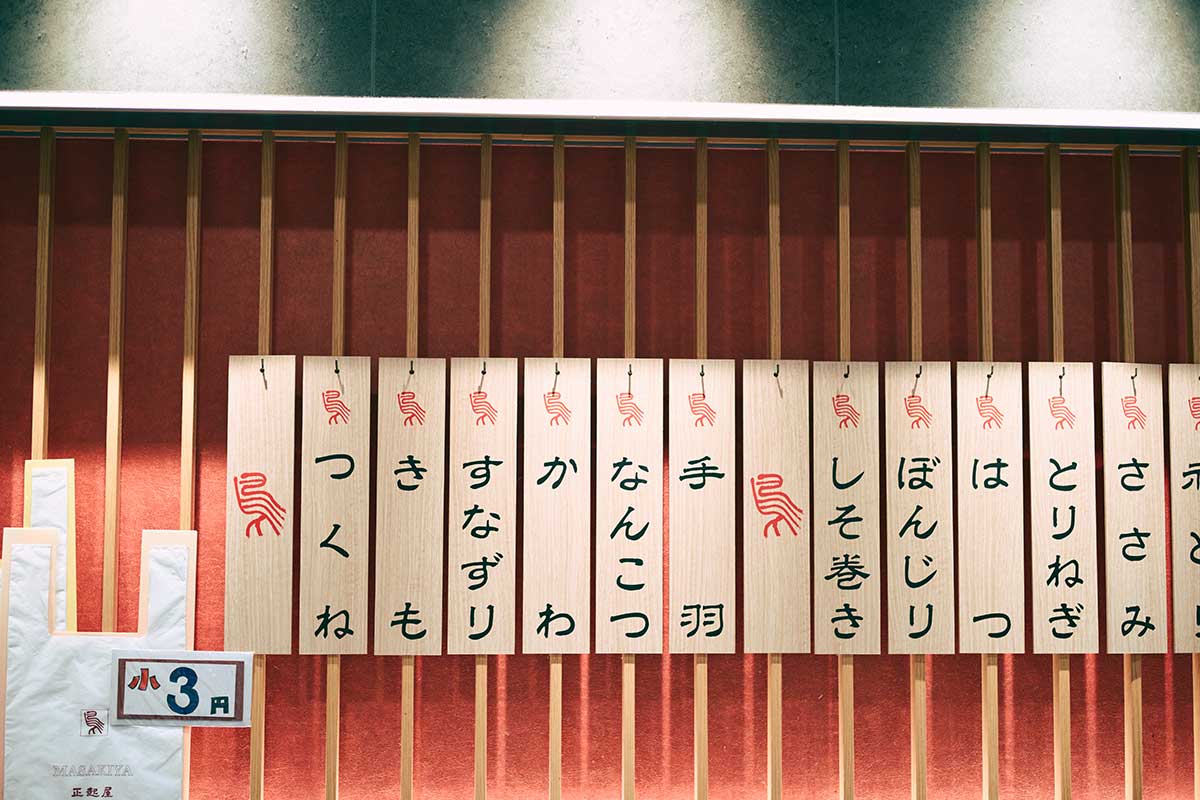 つくね
きも
すなずり
かわ
なんこつ
手羽
しそ巻き
ぼんじり
はつ
とりねぎ
ささみ
小3円
MASAKIYA
正起屋